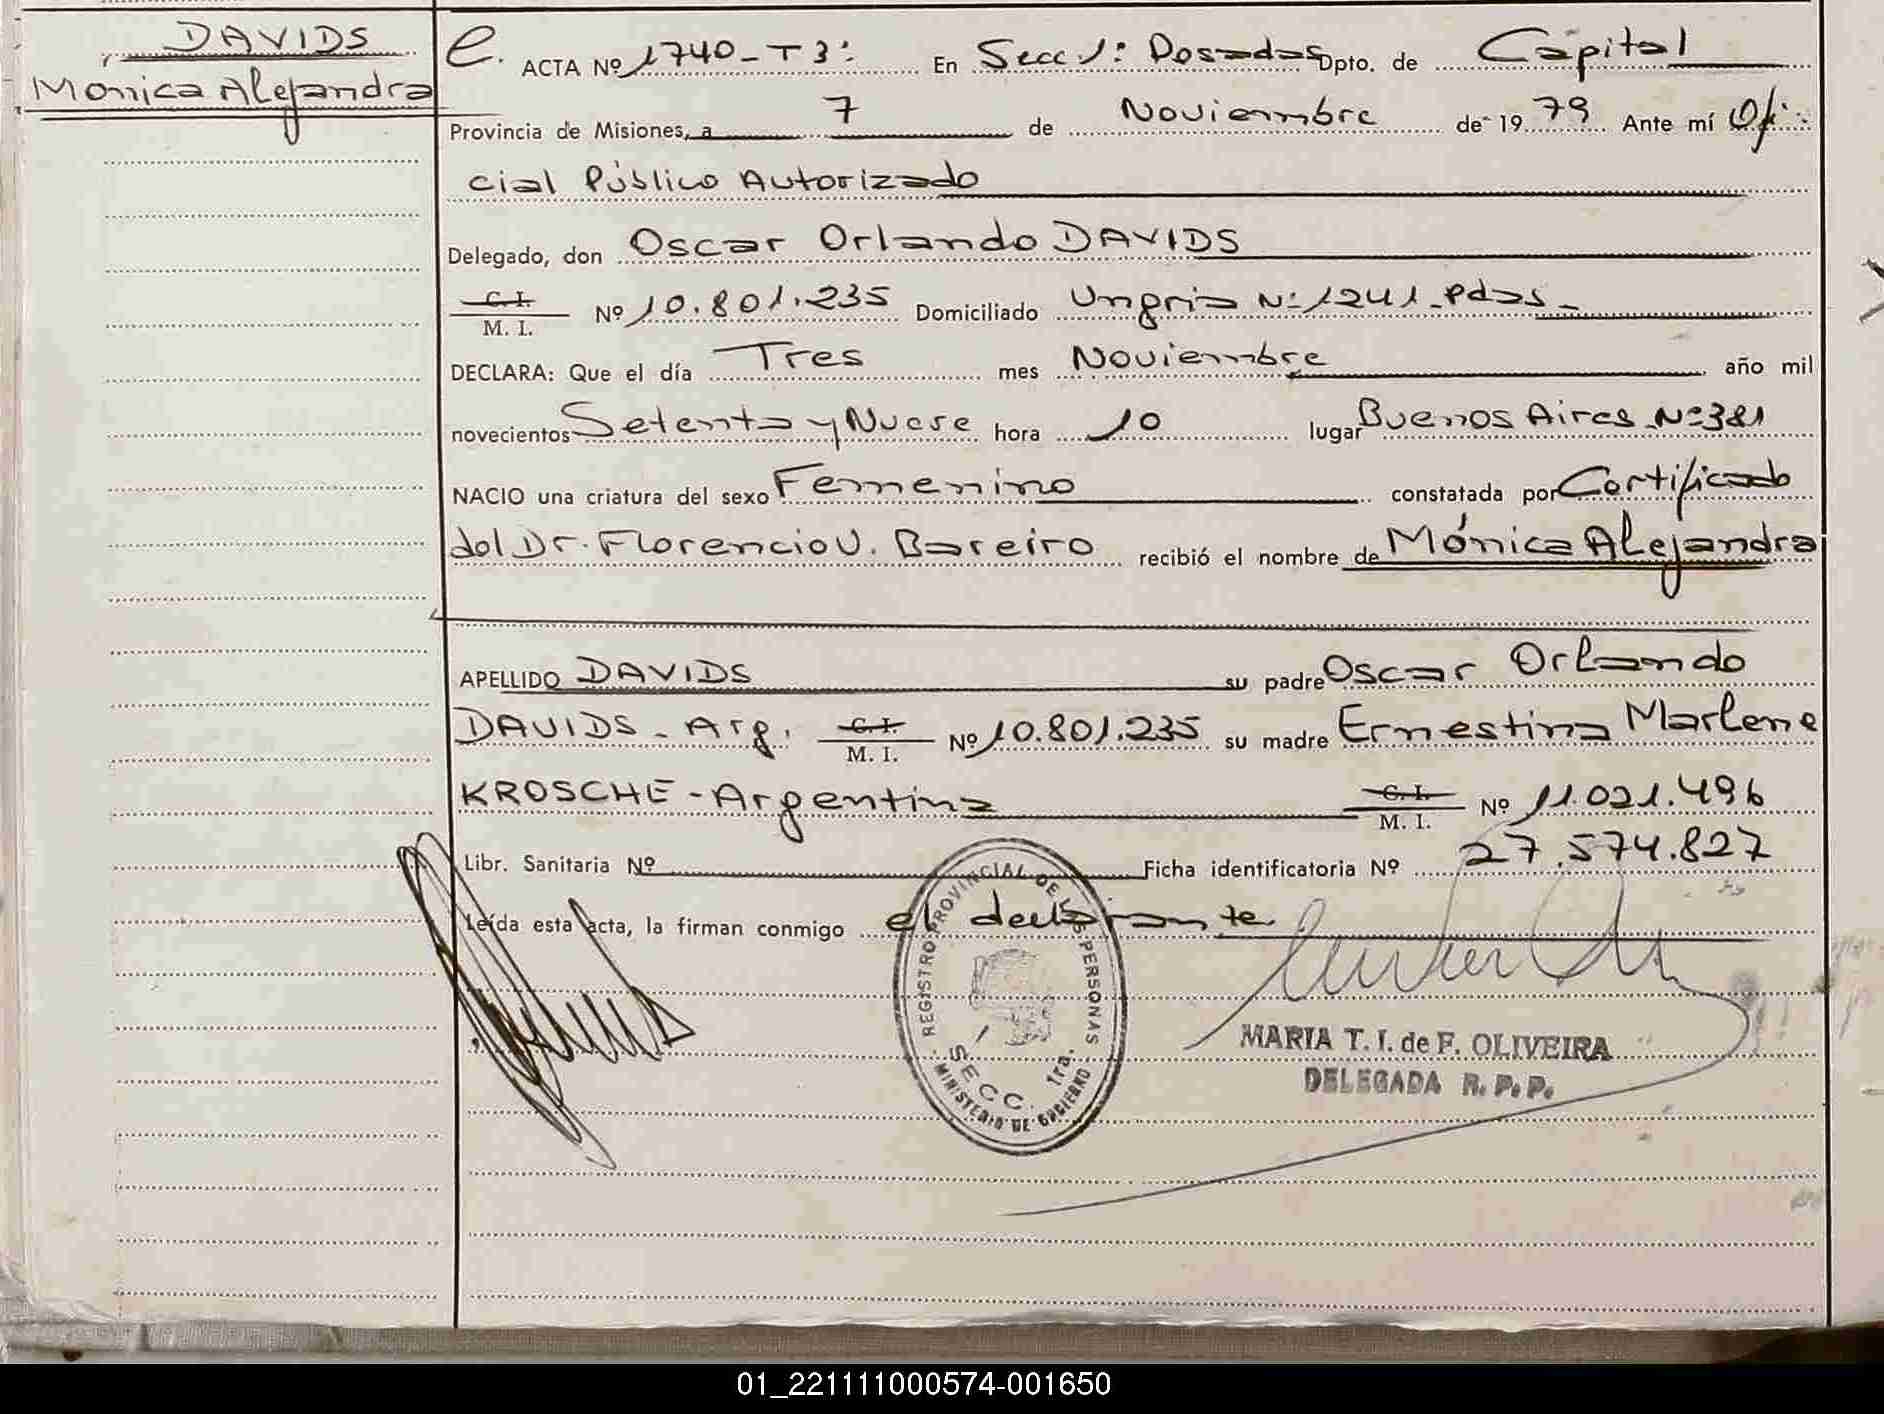 DAVIDS
Mónica Alejandra
e. ACTA Nº 1740-T3: En Secc 1: Posadas Dpto. de Capital
Provincia de Misiones, a 7 de Noviembre de 1979 Ante mí Ofi-
cial Público Autorizado
Delegado, don Oscar Orlando DAVIDS
C. I.
M. I. Nº 10.801.235 Domiciliado Ungria Nº 1241-Pdas-
DECLARA: Que el día Tres mes Noviembre año mil
novecientos Setenta y Nueve hora 10 lugar Buenos Aires Nº 381
NACIO una criatura del sexo Femenino constatada por Certificado
del Dr. Florencio V. Bareiro recibió el nombre de Mónica Alejandra
APELLIDO DAVIDS su padre Oscar Orlando
DAVIDS - Arg. C. I. M. I. Nº 10.801.235 su madre Ernestina Marlene
KROSCHE - Argentina C. I. M. I. Nº 11.021.496
Libr. Sanitaria Nº Ficha identificatoria Nº 27.574.827
Leída esta acta, la firman conmigo el declarante
REGISTRO PROVINCIAL DE LAS PERSONAS
SECC. 1ra.
MINISTERIO DE GOBIERNO
MARIA T. I. de F. OLIVEIRA
DELEGADA R. P. P.
01_221111000574-001650